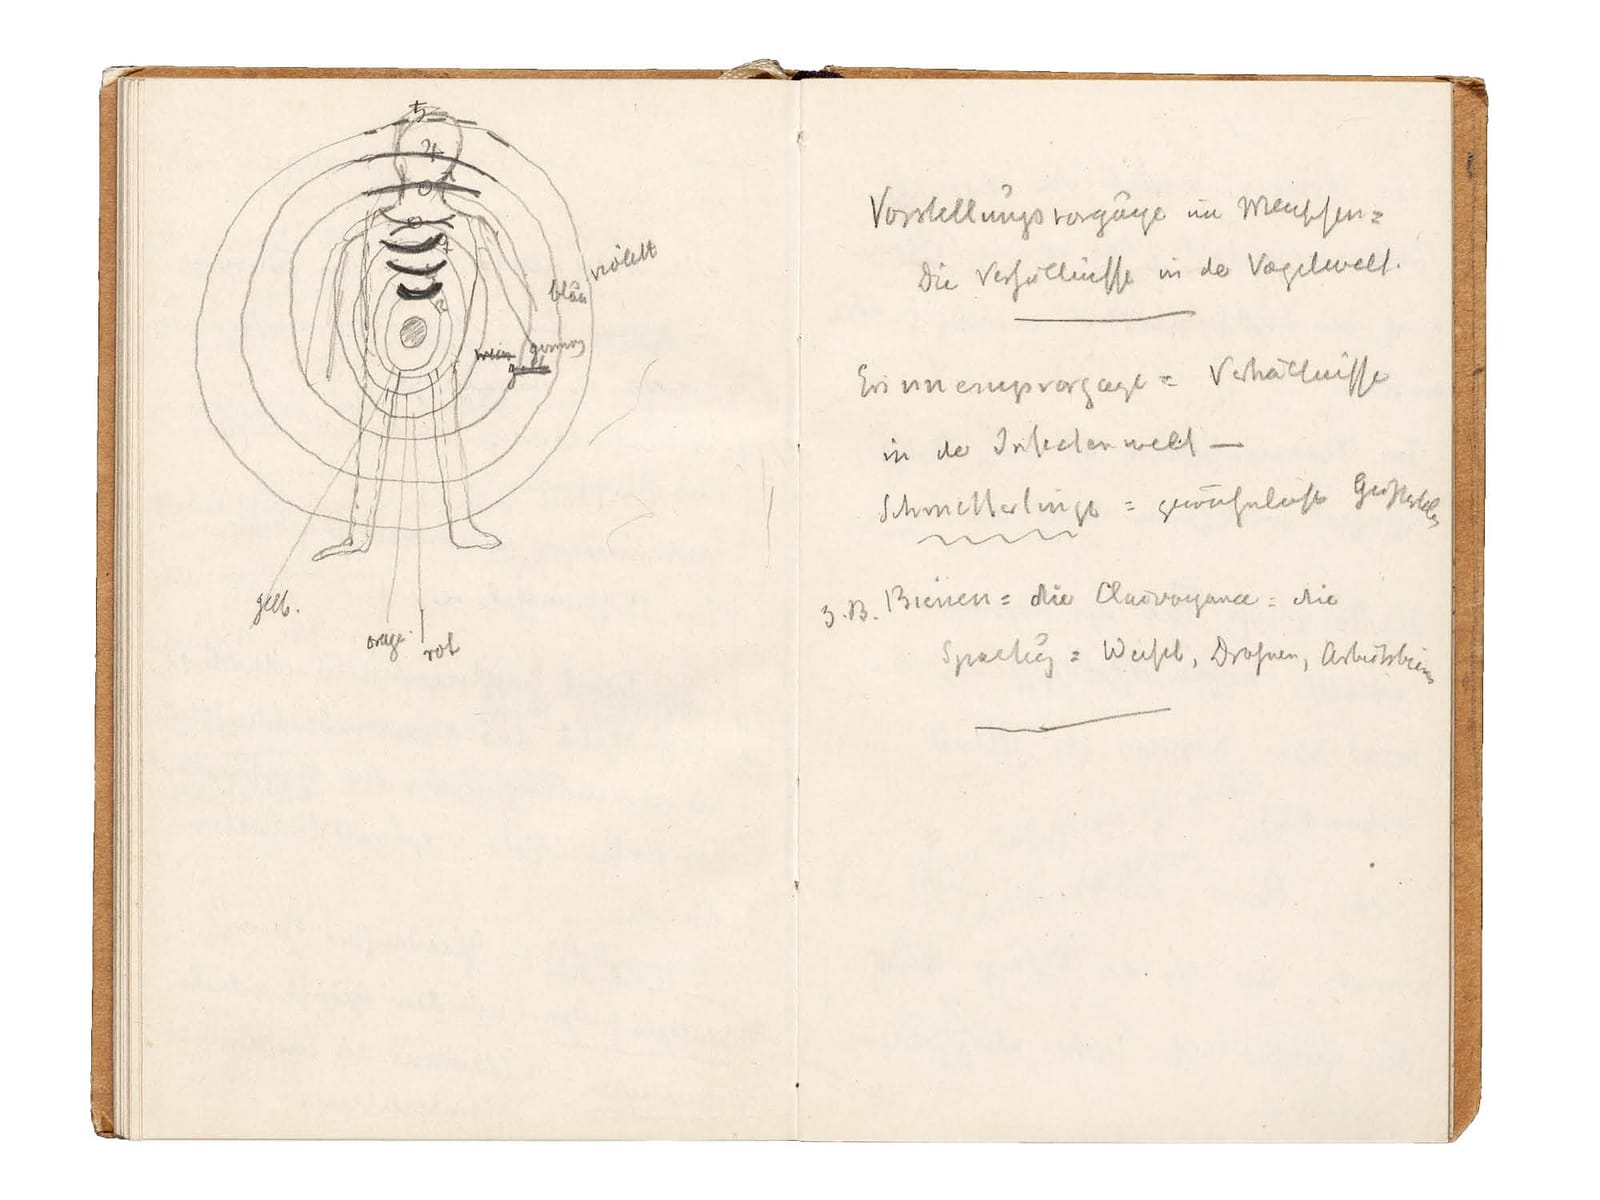 ♄
♃
violett
blau
gelb
gelb.
orage
rot
Vorstellungsvorgänge im Menschen =
Die Verhältnisse in der Vogelwelt.
Erinnerungsvorgage = Verhältnisse
in der Insectenwelt —
Schmetterlinge = gewöhnliche
z. B. Bienen = die Clairvoyance = die
= Weisel, Drohnen, Arbeitsbienen